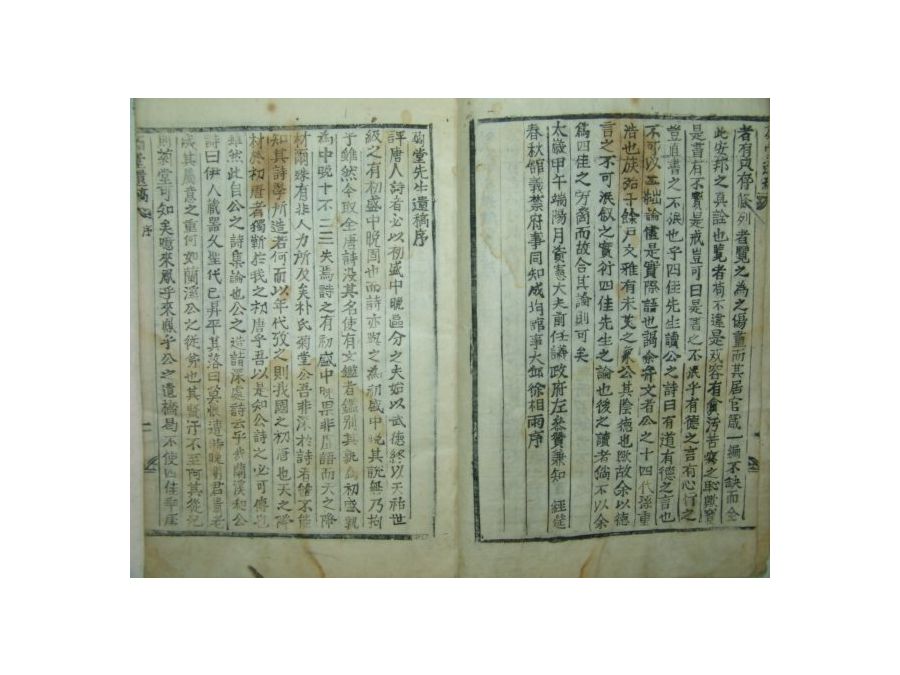 者有只存條列者覽之為之傷薑而其居官箴一編不缺而全
此安邦之真詮也覽者苟不違是戒容有貪汚苦窳之恥
是書有不實是戒豈可曰是書之不泯乎有德之言有心得之
豈直書之不泯也乎四佳先生讀公之詩曰有道有德之言也
不可以論儘是實際語也謁余弁文者公之十四代孫重
浩也族殆千餘戶文雅有未艾之象公其陰德也歟故余以德
言之不可泯叙之實衍四佳先生之論也後之讀者倘不以余
為四佳之旁裔而故合其論則可矣
太歲甲午端陽月資憲大夫前任議政府左參贊兼知 經筵
春秋館義禁府事同知成均館事大邱徐相雨序
菊堂先生遺稿序
評唐人詩者必以初盛中晚區分之夫始以武德終以天祐世
級之有初盛中晚固也而詩亦與之為初盛中晚其說無乃拘
乎雖然今取全唐詩沒其名使有文鑑者鑑別其孰為初盛孰
為中晚十不二三失焉詩之有初盛中晚果非虛語而天之降
材爾殊有非人力所及矣朴氏菊堂公吾非深於詩者儘不能
知其詩學所造若何而以年代攷之則我國之初唐也天之降
材於初唐者獨斷於我之初唐乎吾以是知公詩之必可傳也
雖然此自公之詩集論也公之造請深處詩云乎哉蘭溪和公
詩曰伊人藏器久聖代已昇平其落
成其屬意之重何如蘭溪公之從菊也其賢汙不至阿其從兄
菊堂可知矣噫來鳳乎來鳳乎公之遺橋易不使四佳
菊堂遺稿 序